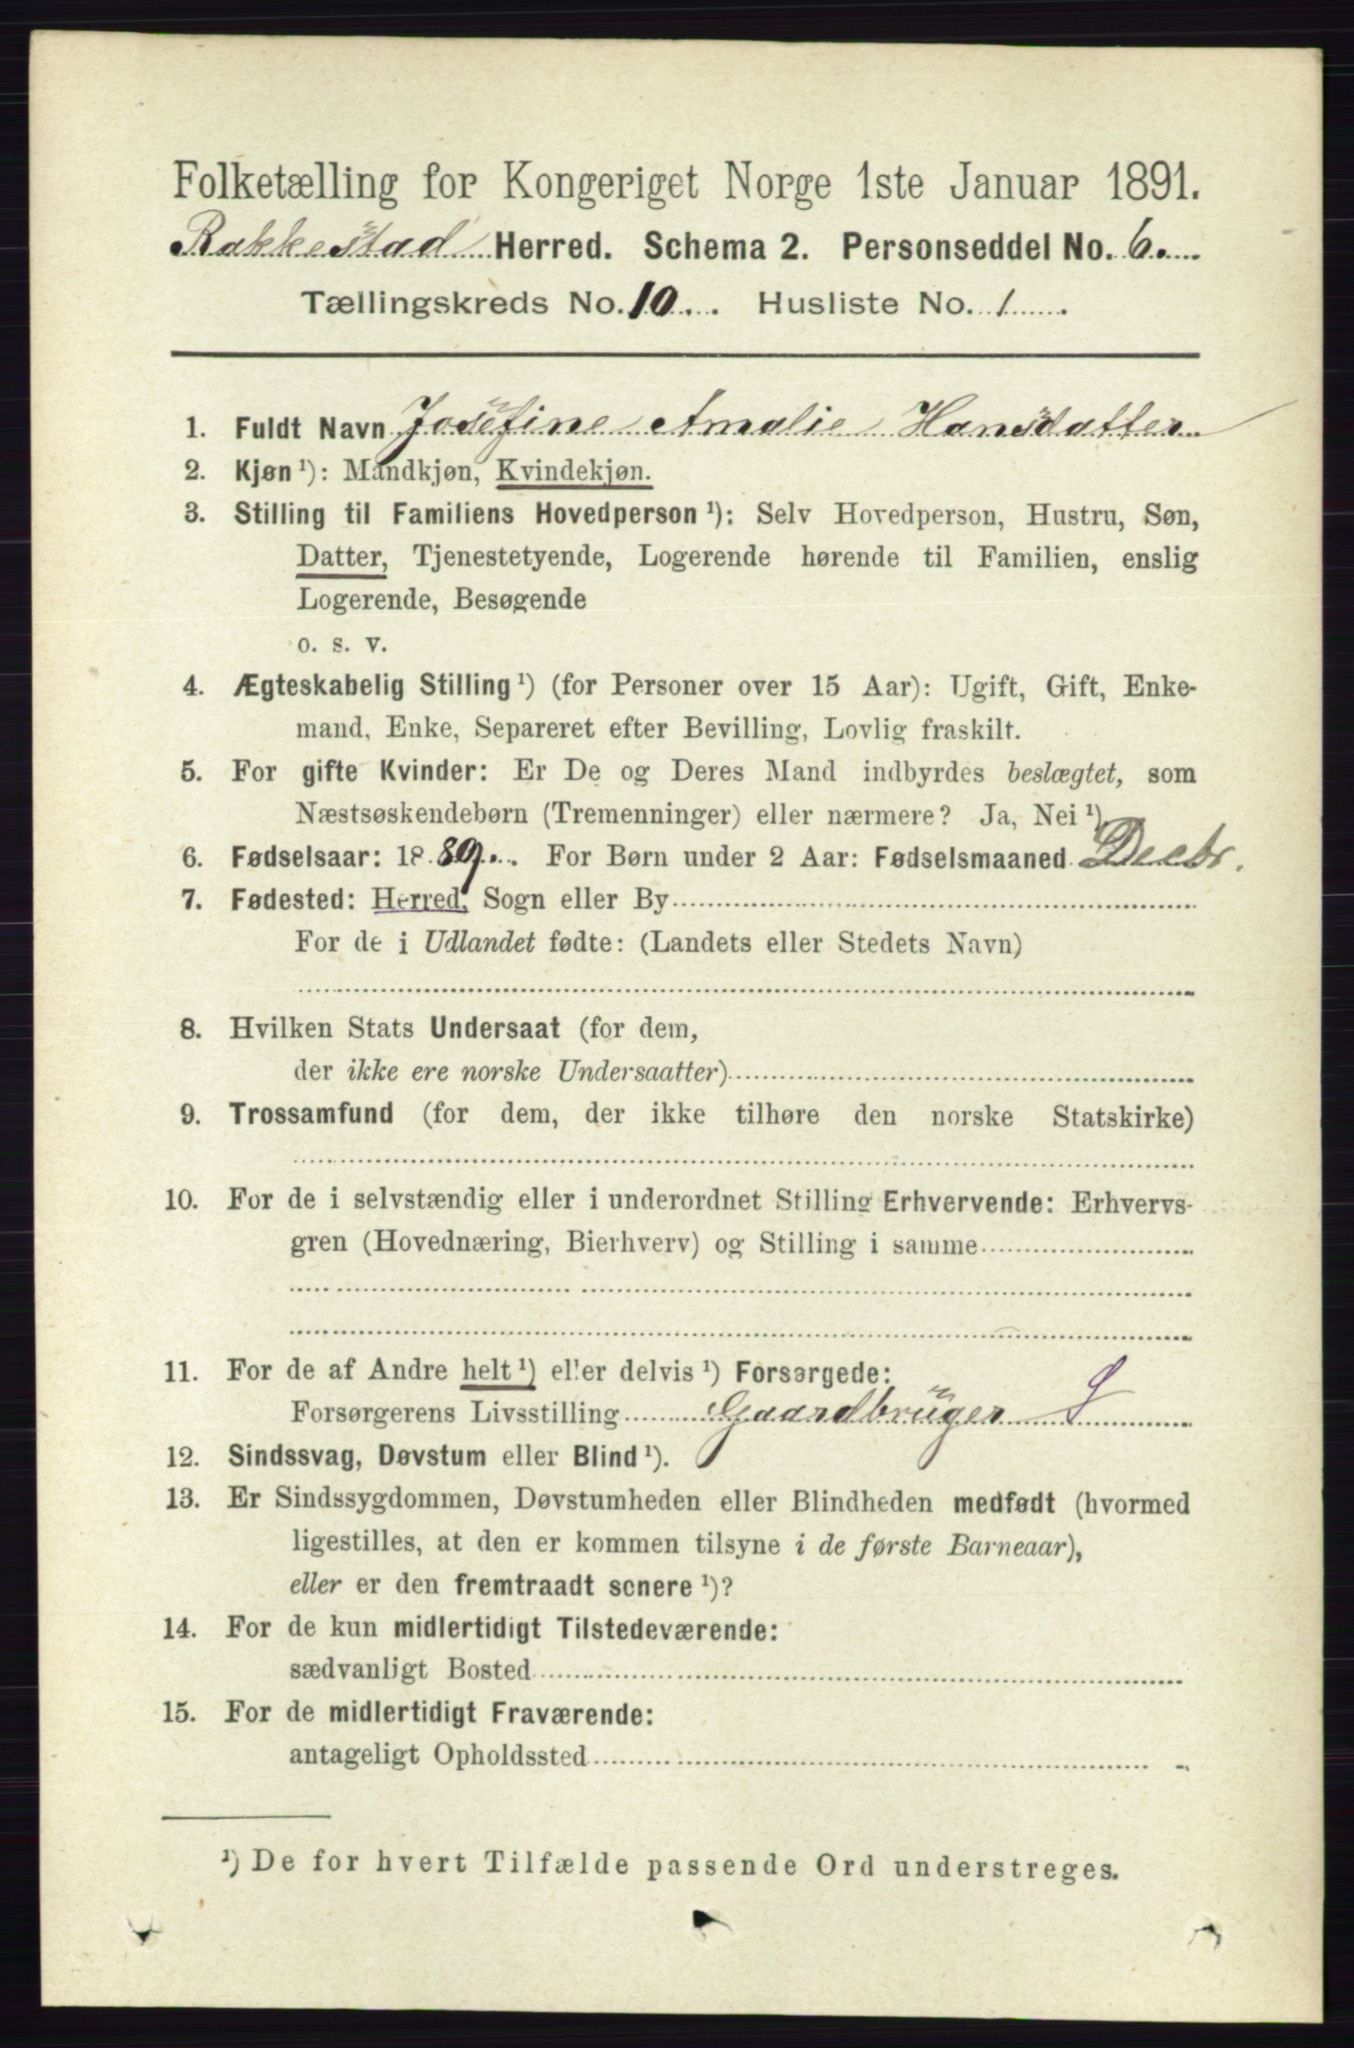 Folketælling for Kongeriget Norge 1ste Januar 1891.
Rakkestad Herred. Schema 2. Personseddel No. 6.
Tællingskreds No. 10. Husliste No. 1
1. Fuldt Navn Josefine Amalie Hansdatter
2. Kjøn ¹): Mandkjøn, Kvindekjøn.
3. Stilling til Familiens Hovedperson ¹): Selv Hovedperson, Hustru, Søn,
Datter, Tjenestetyende, Logerende hørende til Familien, enslig
Logerende, Besøgende
o. s. v.
4. Ægteskabelig Stilling ¹) (for Personer over 15 Aar): Ugift, Gift, Enke-
mand, Enke, Separeret efter Bevilling, Lovlig fraskilt.
5. For gifte Kvinder: Er De og Deres Mand indbyrdes beslægtet, som
Næstsøskendebørn (Tremenninger) eller nærmere? Ja, Nei ¹)
6. Fødselsaar: 1889. For Børn under 2 Aar: Fødselsmaaned Decbr.
7. Fødested: Herred, Sogn eller By
For de i Udlandet fødte: (Landets eller Stedets Navn)
8. Hvilken Stats Undersaat (for dem,
der ikke ere norske Undersaatter)
9. Trossamfund (for dem, der ikke tilhøre den norske Statskirke)
10. For de i selvstændig eller i underordnet Stilling Erhvervende: Erhvervs-
gren (Hovednæring, Bierhverv) og Stilling i samme
11. For de af Andre helt ¹) eller delvis ¹) Forsørgede:
Forsørgerens Livsstilling Gaardbrüger S
12. Sindssvag, Døvstum eller Blind ¹).
13. Er Sindssygdommen, Døvstumheden eller Blindheden medfødt (hvormed
ligestilles, at den er kommen tilsyne i de første Barneaar),
eller er den fremtraadt senere ¹)?
14. For de kun midlertidigt Tilstedeværende:
sædvanligt Bosted
15. For de midlertidigt Fraværende:
antageligt Opholdssted
¹) De for hvert Tilfælde passende Ord understreges.